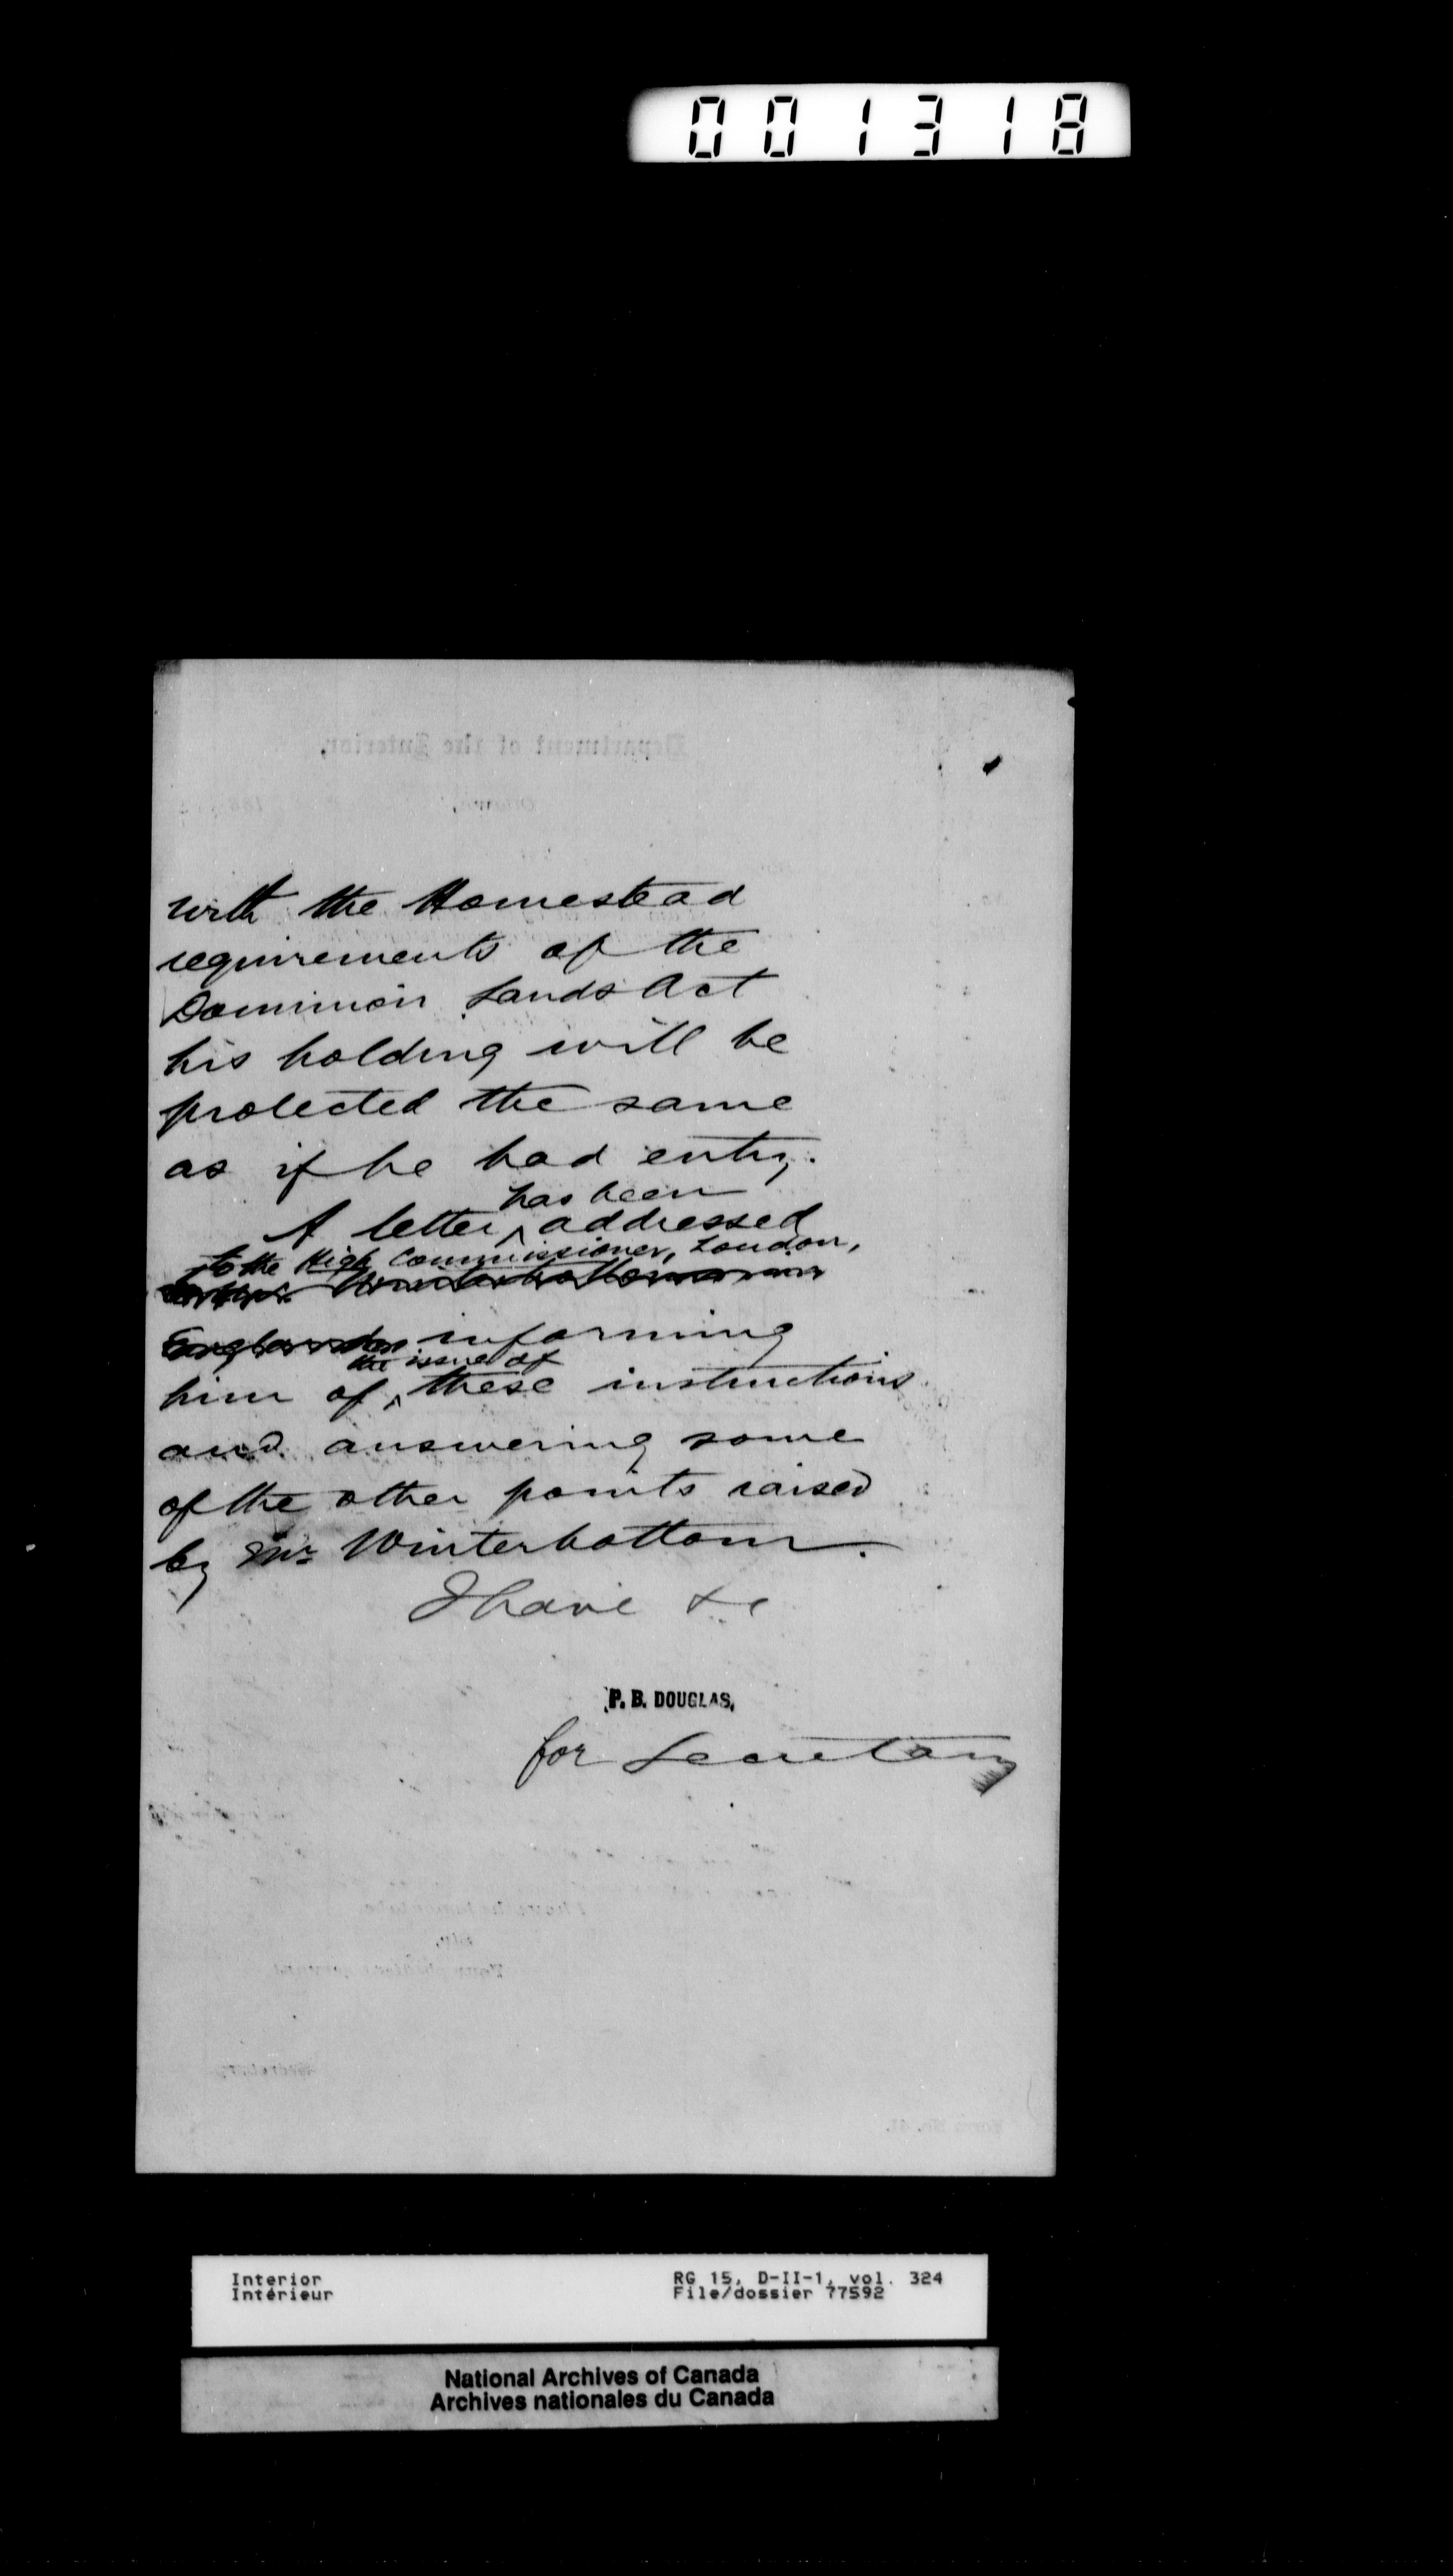 001318
with the Homestead
requirements of the
Dominion Lands Act
his holding will be
protected the same
as if he had entry.
has been
A letter ^ addressed
to the High Commissioner, London,
to Mr. Winterbottom in
England informing
the issue of
him of ^ these instructions
and answering some
of the other points raised
by Mr Winterbottom.
I have &c
P. B. DOUGLAS,
for Secretary
Interior
Intérieur
RG 15, D-II-1, vol. 324
File/dossier 77592
National Archives of Canada
Archives nationales du Canada